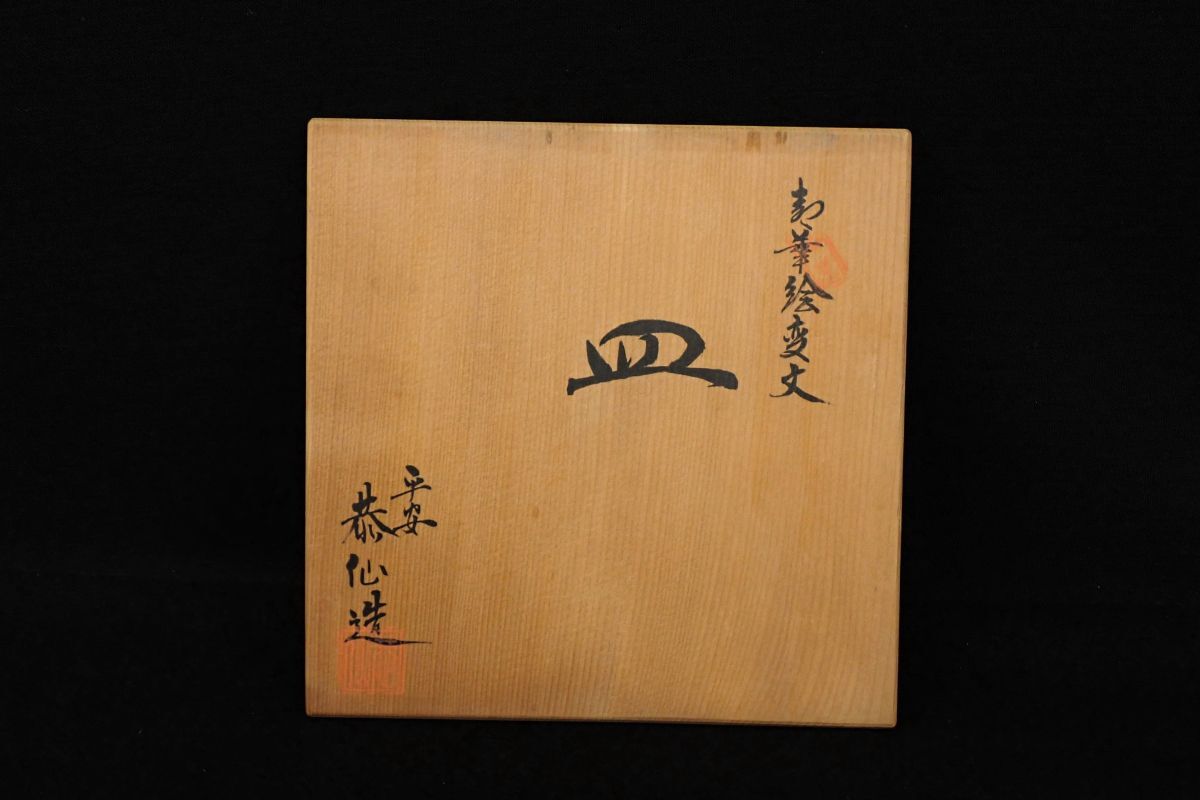 華絵変文
皿
平安
恭仙造